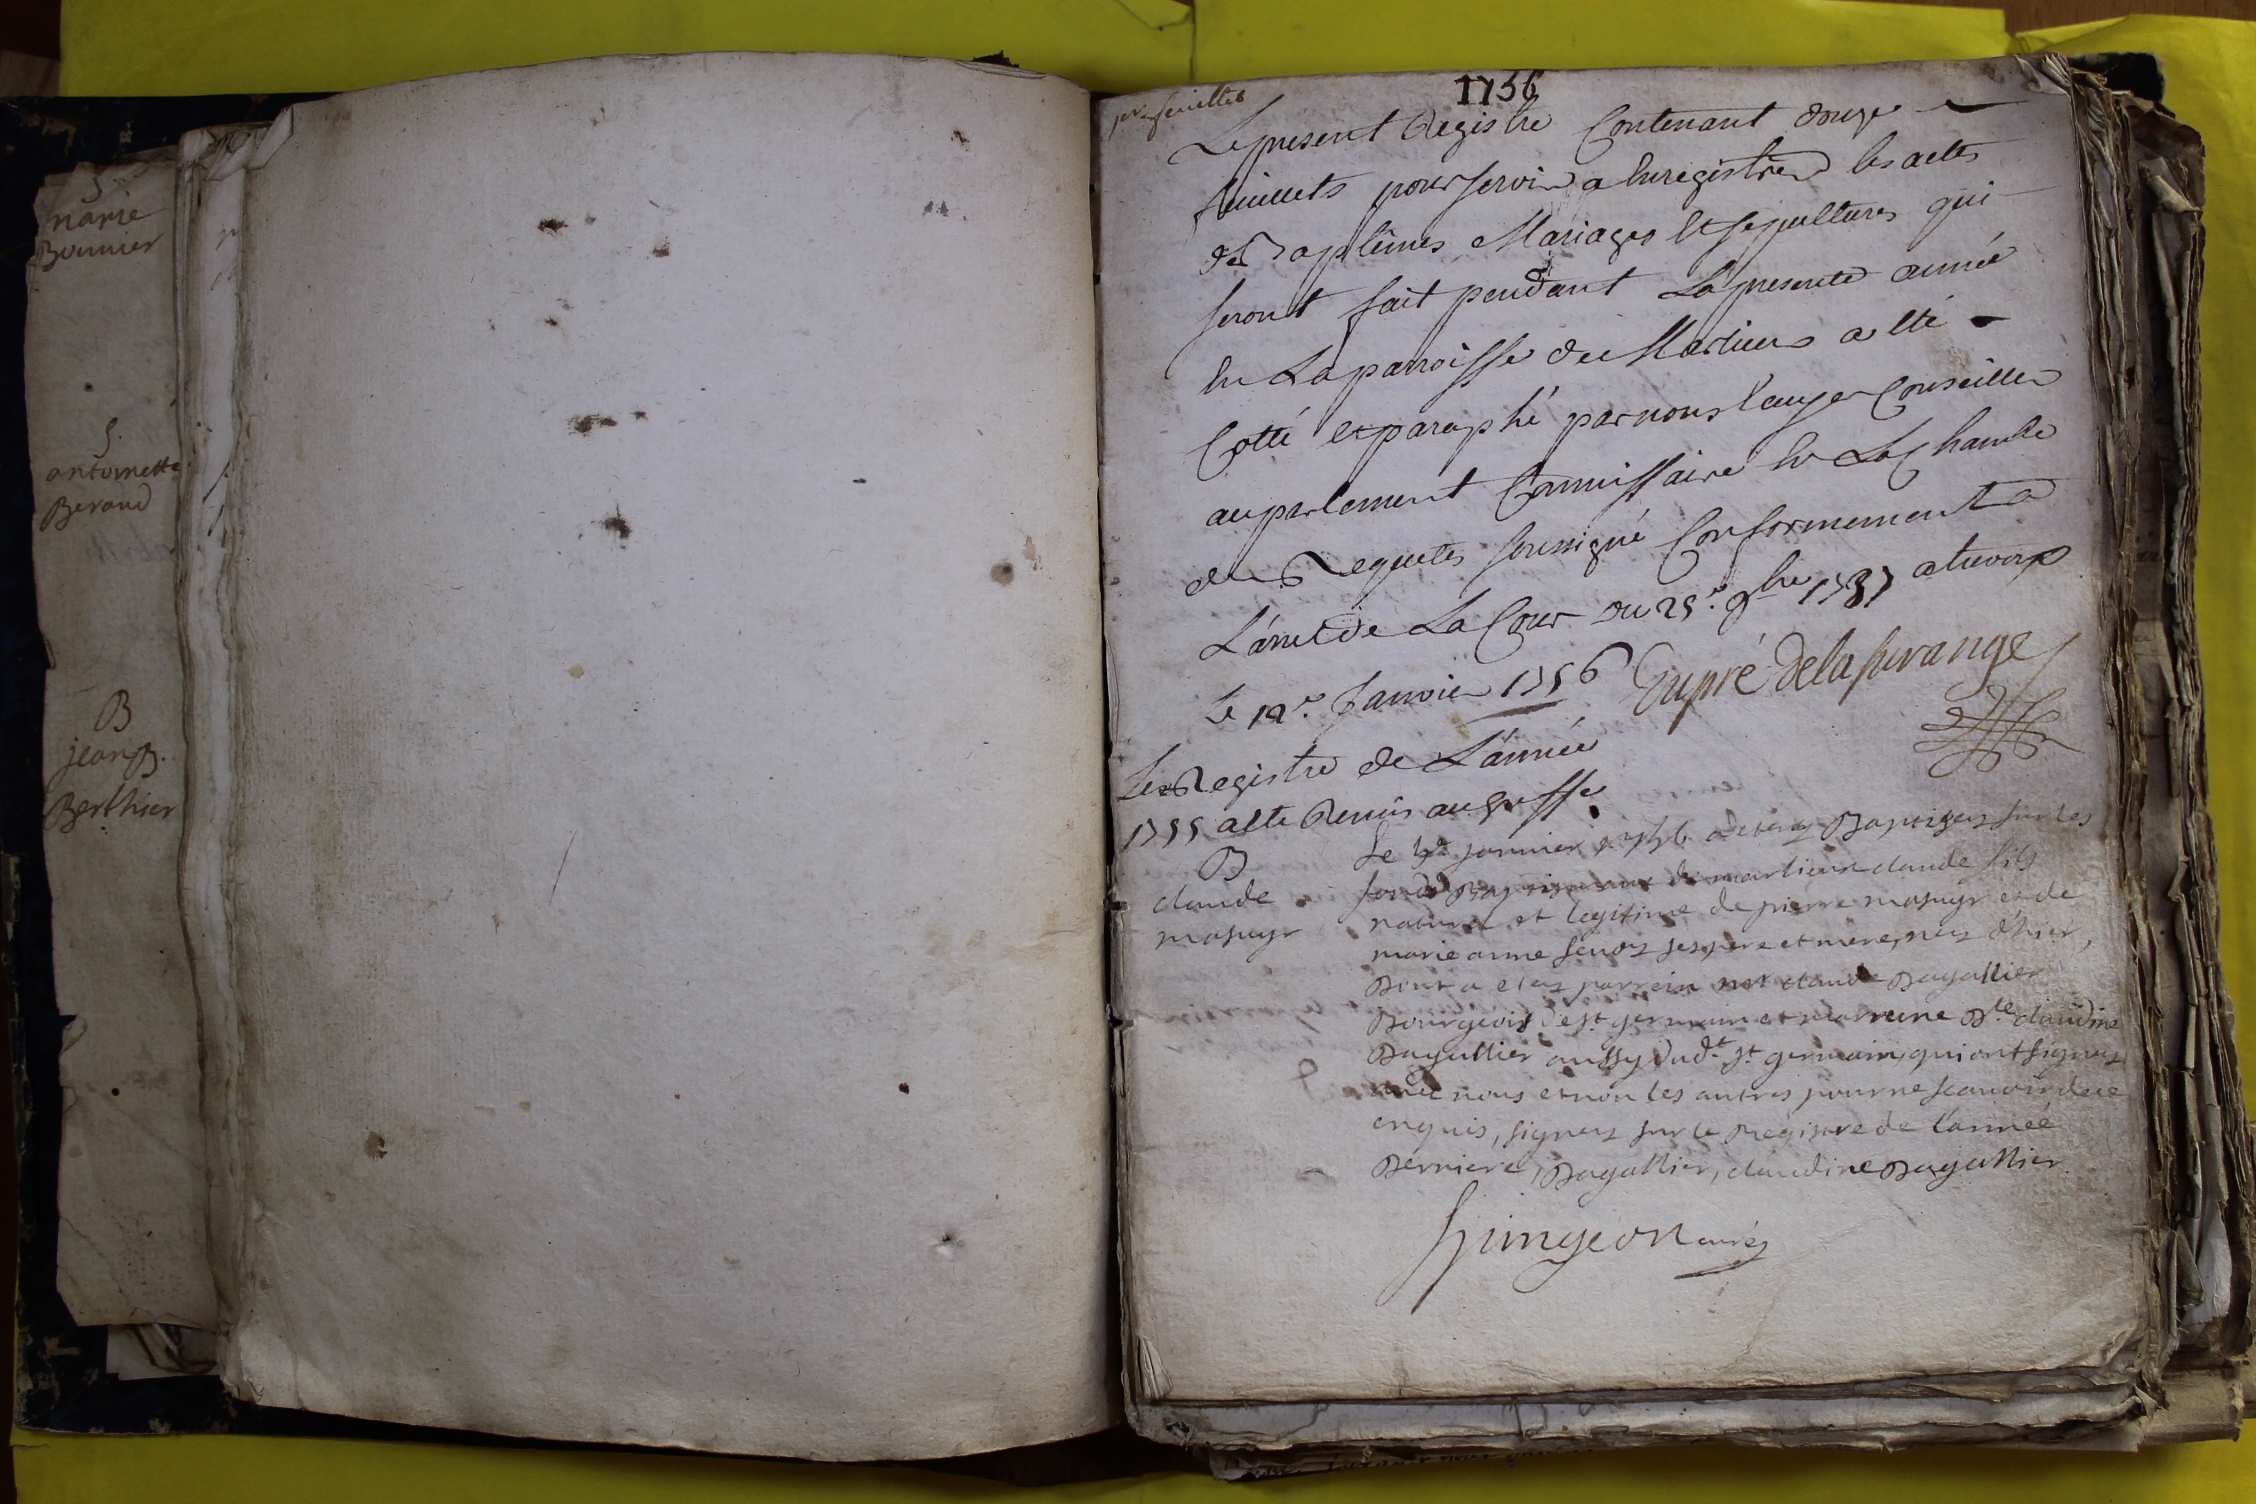 5
marie
Bonnier
S.
antoinette
Beraud
B
jean B.
Berthier
1756
pr feuillet
Le present Registre Contenant douze
feuillets pour servir a Enregistrer les actes
de Baptêmes Mariages Et sepultures qui
seront fait pendant La presente année
En La paroisse de Marlieux a Eté
Cotté et paraphé par nous Conseiller
au parlement Commissaire En La Chambre
des Requetes soussigné Conformement a
L'arret de La Cour du 25e 9bre 1737 a trevoux
Le 12e Janvier 1756 Dupré
Le Registre de L'année
1755 a Eté Remis au greffe
B
claude
masuyr
Le janvier 1756 a etez Baptisez sur les
fonds Baptismaux de marlieux claude fils
naturel et legitime de pierre masuyr et de
marie anne ses pere et mere, nez d'hier,
Dont a etez parrein claude Dagallier
Bourgeois de st germain et marreine Dlle claudine
Dagallier aussy dudt st germain, qui ont signez
avec nous et non les autres pour ne scauoir de ce
enquis, signez sur le Registre de l'année
Derniere, Dagallier, claudine Dagallier.
curéz